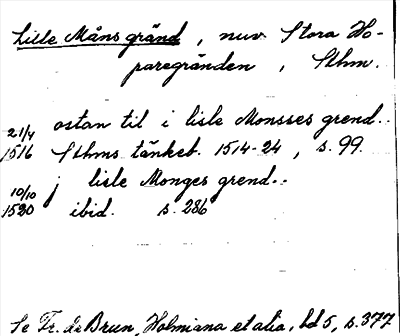 Lille Måns gränd, nuv. Stora Ho-
paregränden, Sthm.
ostan til i lisle Monsses grend..
21/4
1516 Sthms tänkeb. 1514-24, s. 99.
j lisle Monges grend..
10/10
1520 ibid. s. 286
Se Fr. de Brun, Holmiana et alia, bd 5, s. 377